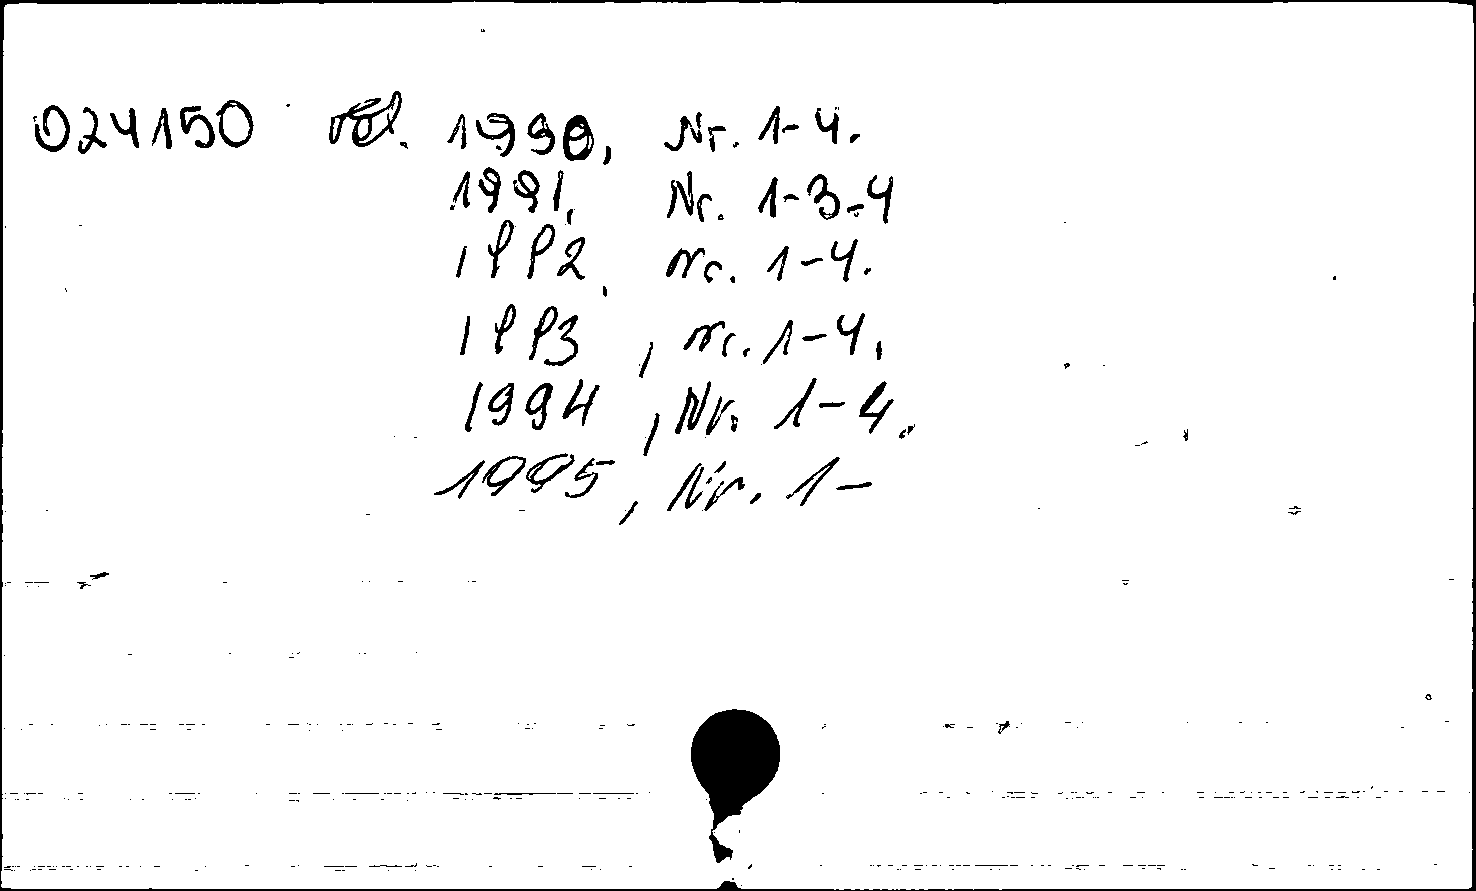 024150 Vol. 1990, Nr. 1-4.
1991, Nr. 1-3-4
1992, Nr. 1-4.
1993, Nr. 1-4.
1994, Nr. 1-4.
1995, Nr. 1-